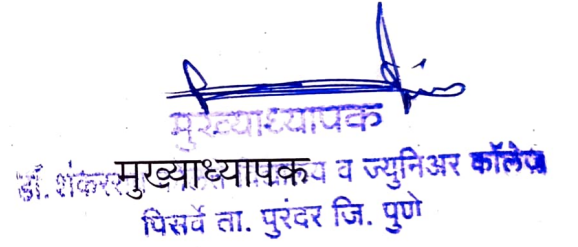 मुख्याध्यापक
मुख्याध्यापक
डॉ. शंकर व ज्युनिअर कॉलेज
पिसर्वे ता. पुरंदर जि. पुणे